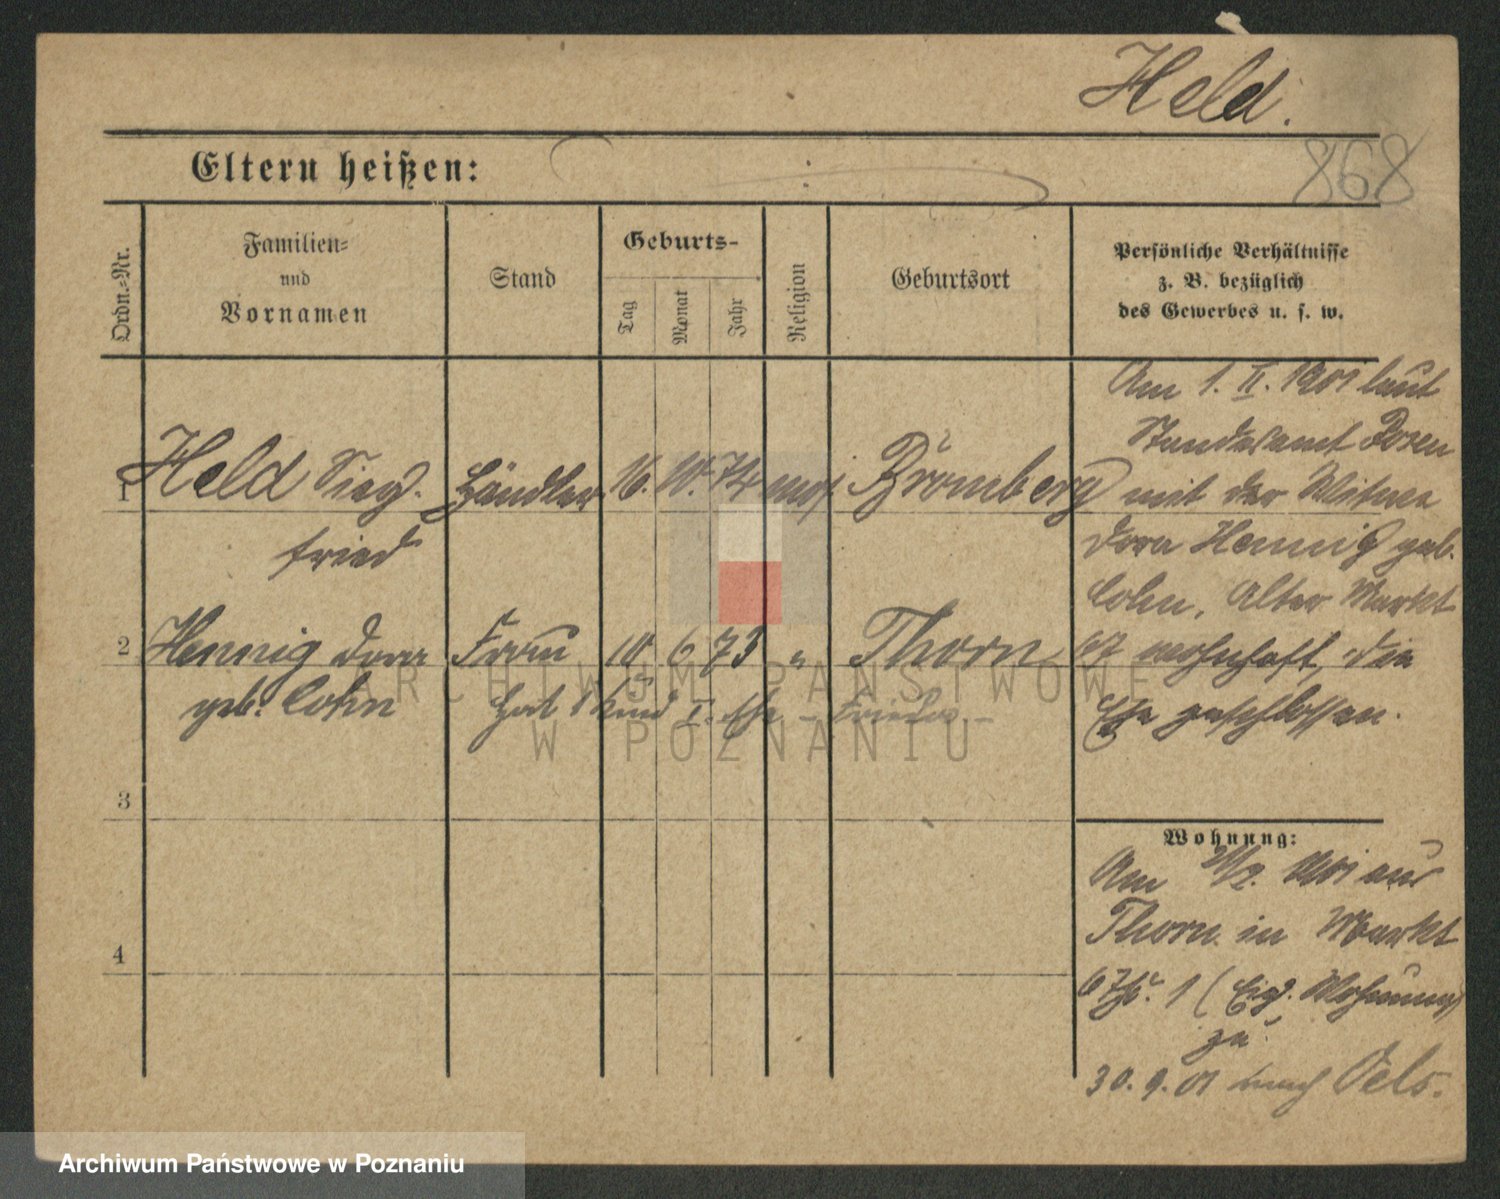 Held.
868
Eltern heißen:
Ordn.=Nr.
Familien=
und
Vornamen
Stand
Geburts-
Tag
Monat
Jahr
Religion
Geburtsort
Persönliche Verhältnisse
z. B. bezüglich
des Gewerbes u. s. w.
1
Held Sieg-
fried
Händler
16. 10. 74 mos.
Bromberg
2
Hennig Dora
geb. Cohn
Frau
10 6 73 "
Thorn
hat 1 Kind I. Ehe - Frieda -
3
4
Am 1. II. 1901 laut
Standesamt Posen
mit der Witwe
Dora Hennig geb.
Cohn, Alter Markt
67 wohnhaft, die
Ehe geschlossen.
Wohnung:
Am 1901 aus
Thorn in Markt
67 1 (Eig. Wohnung)
zu
30. 9. 01 nach Oels.
ARCHIWUM PAŃSTWOWE
W POZNANIU
Archiwum Państwowe w Poznaniu